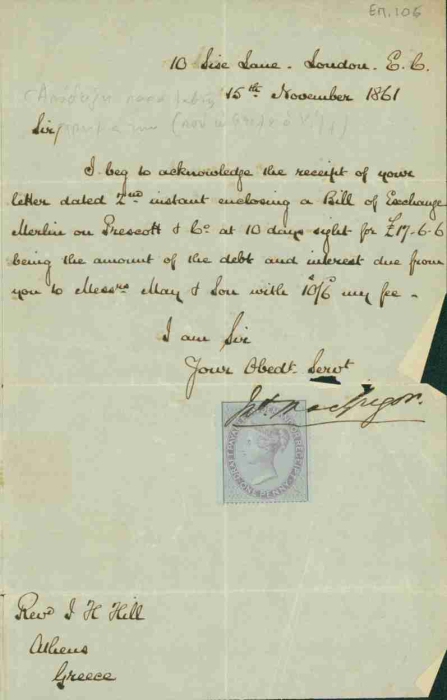 ΕΠ. 106
10 Sise Lane. London. E. C.
15th November 1861
Sir,
I beg to acknowledge the receipt of your
letter dated 2nd instant enclosing a Bill of Exchange
Merlin on Prescott & Co at 10 days sight for £17-6-6
being the amount of the debt and interest due from
you to Messrs May & Son with 10/6 my fee -
I am Sir
Your Obedt. Servt
MacGregor.
DRAFT PAYABLE
OR RECEIPT
ONE PENNY
Revd J H Hill
Athens
Greece